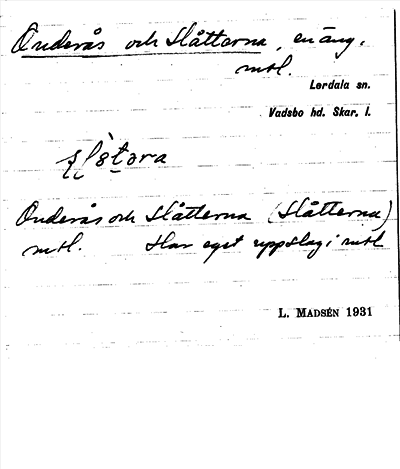 Onderås och Slåttorna, en äng.
mtl.
Lerdala sn.
Vadsbo hd. Skar. l.
Onderås och Slåtterna (Slåtterna)
mtl. Har eget uppslag i mtl
L. MADSÉN 1931